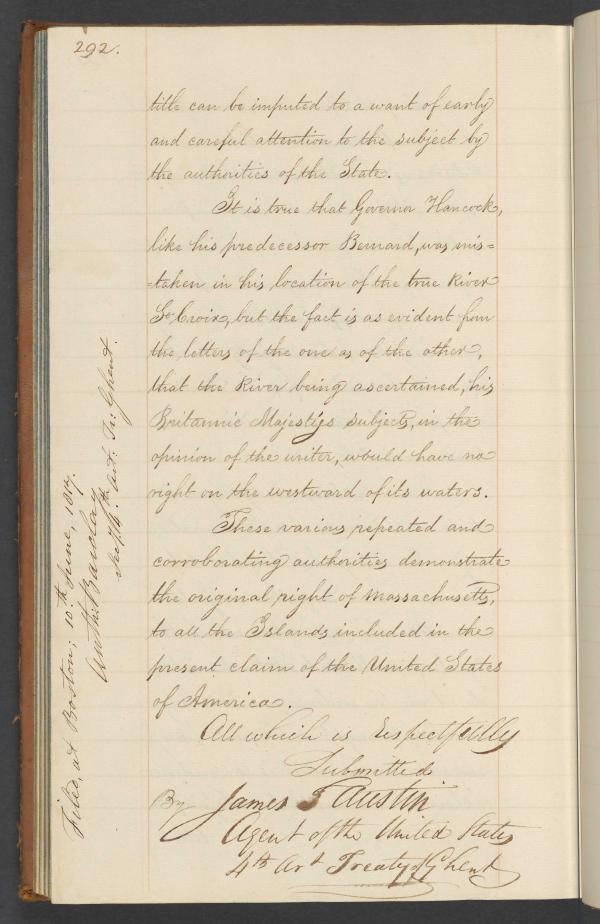 292.
title can be imputed to a want of early
and careful attention to the subject by
the authorities of the State.
It is true that Governor Hancock,
like his predecessor Bernard, was mis=
=taken in his location of the true River
St Croix, but the fact is as evident from
the letters of the one as of the other,
that the River being ascertained, his
Britannic Majesty's subjects, in the
opinion of the writer, would have no
right on the westward of its waters.
These various repeated and
corroborating authorities demonstrate
the original right of Massachusetts,
to all the Islands included in the
present claim of the United States
of America.
All which is respectfully
Submitted
By James T Austin
Agent of the United States
4th Art Treaty of Ghent
Filed, at Boston; 10th June, 1817.
Anth: Barclay
Sec'y 4th. Art: Tr: Ghent.